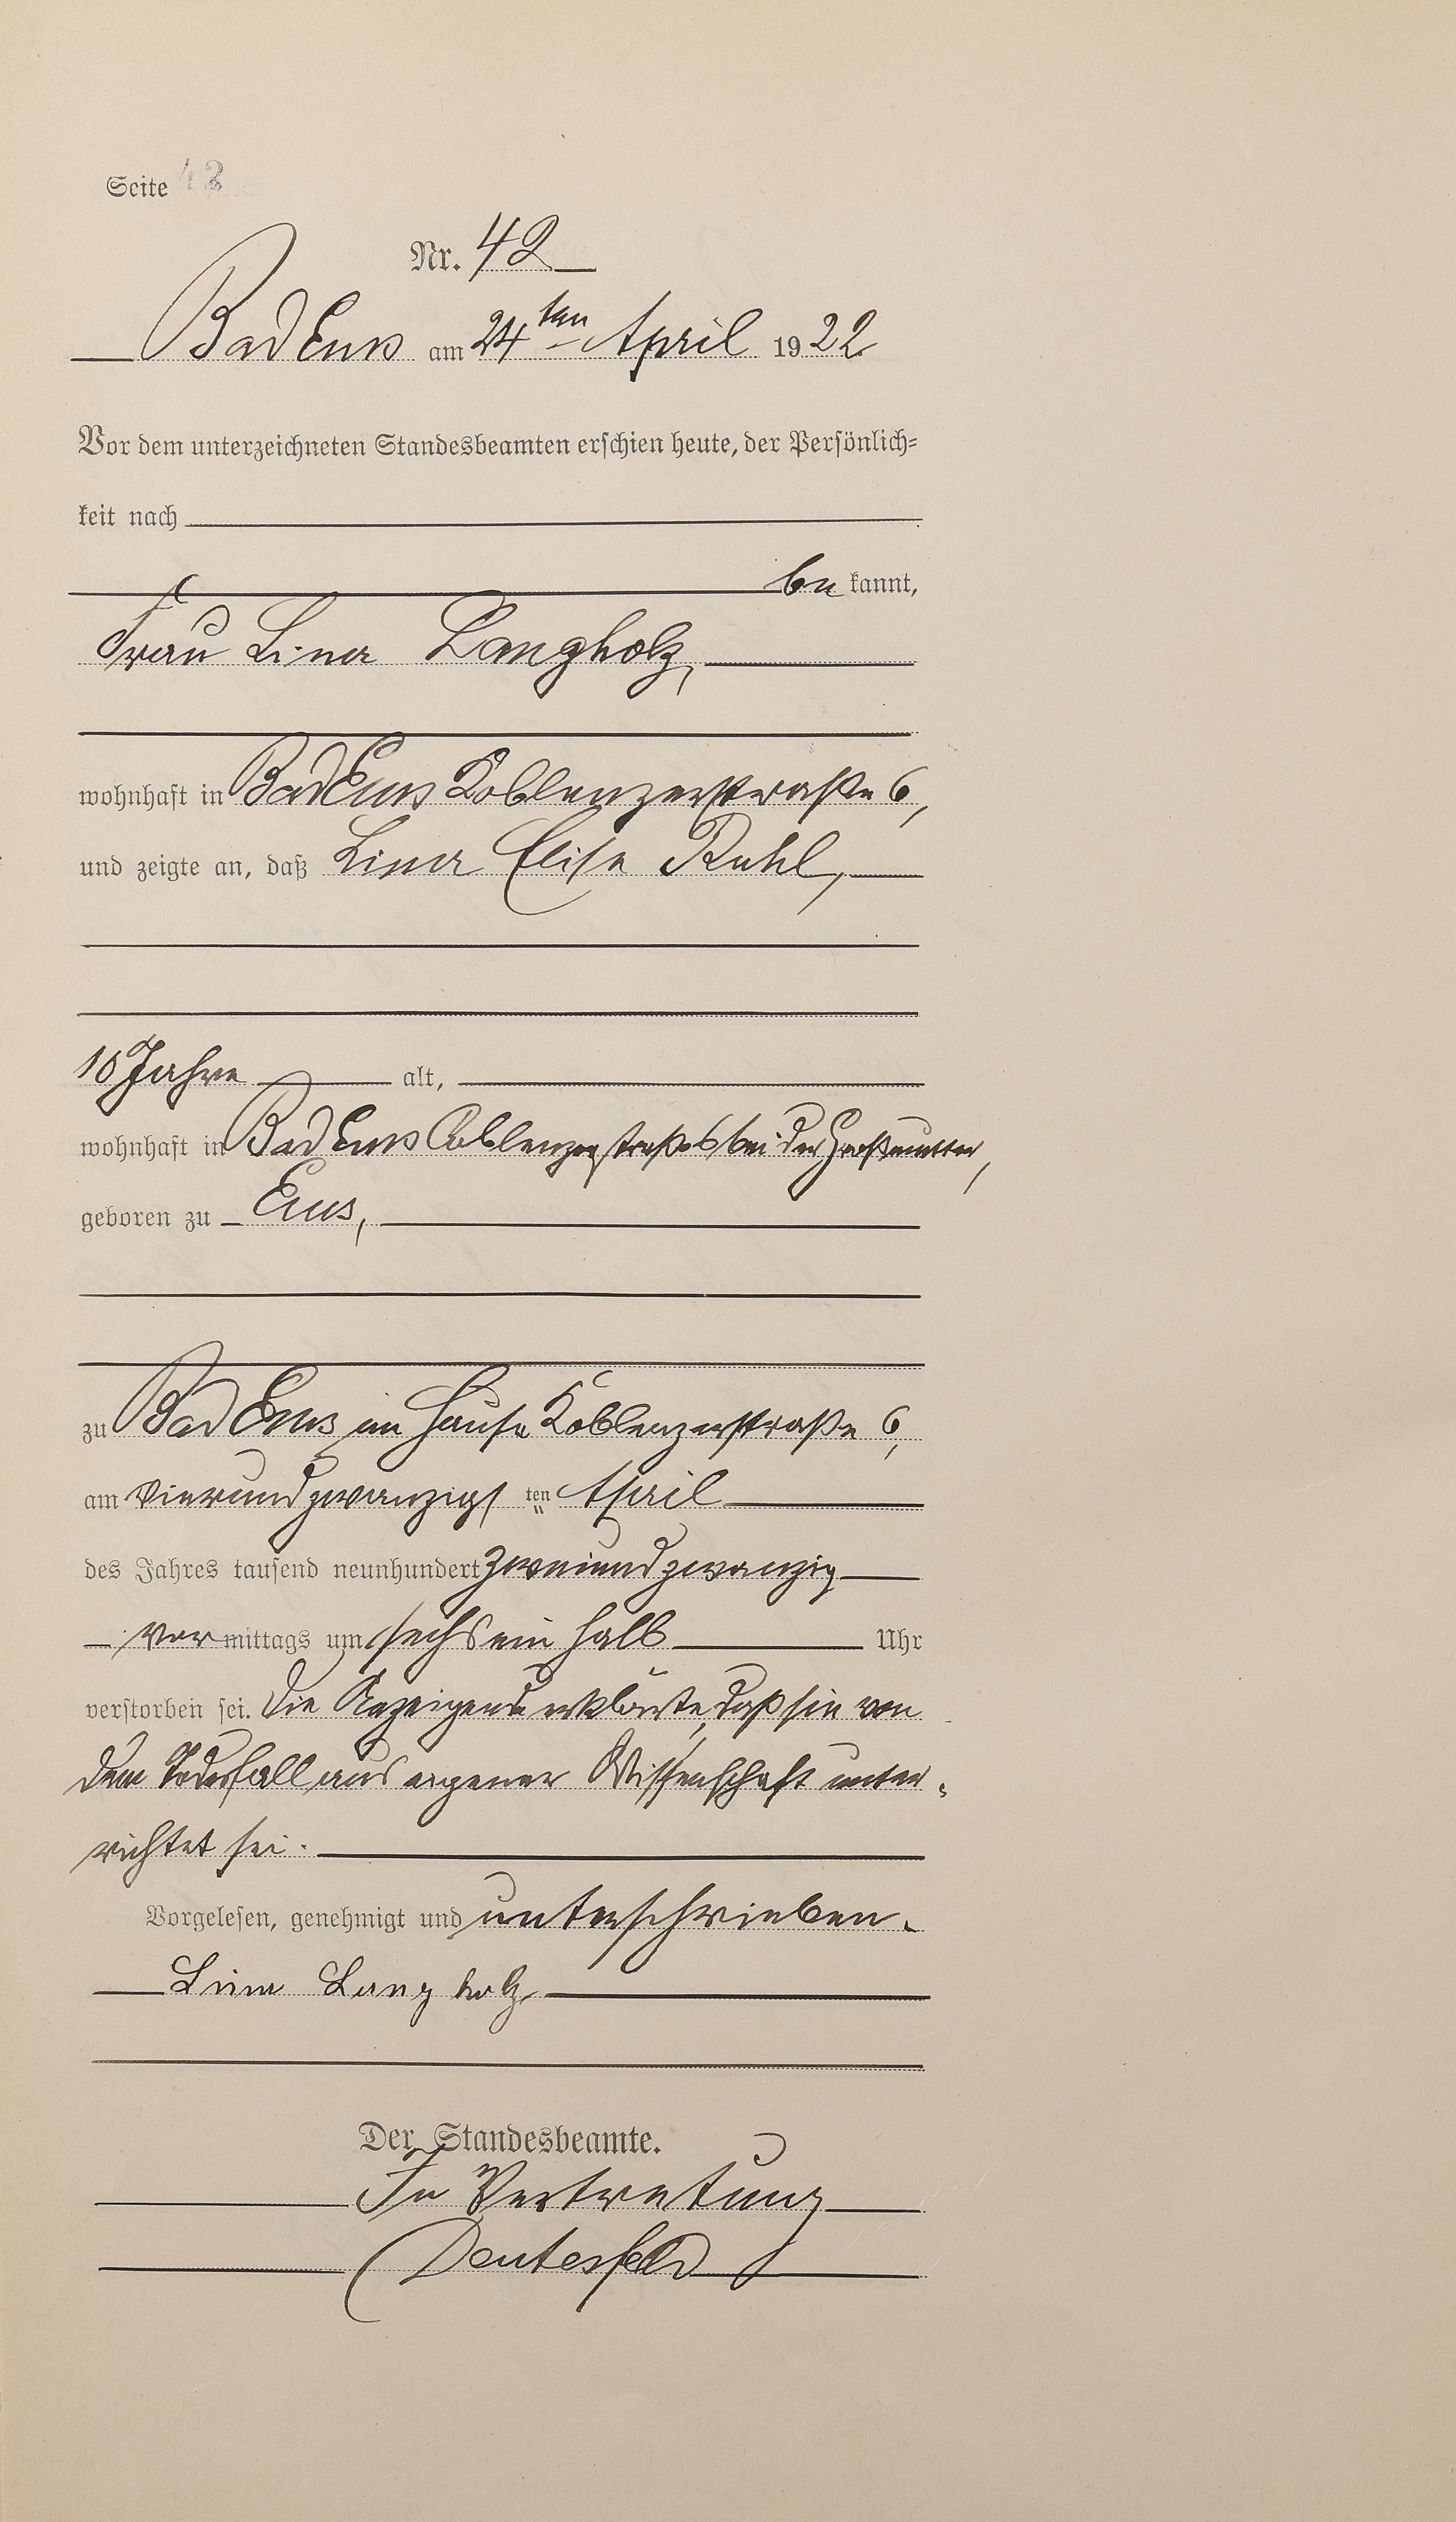 Seite 42
Nr. 42
Bad Ems am 24ten April 1922
Vor dem unterzeichneten Standesbeamten erschien heute, der Persönlich-
keit nach
be kannt,
Frau Lina Langholz,
wohnhaft in Bad Ems Koblenzerstraße 6,
und zeigte an, daß Lina Elise Ruhl,
10 Jahre alt,
wohnhaft in Bad Ems Coblenzerstraße 6 bei der Großmutter,
geboren zu Ems,
zu Bad Ems im Hause Koblenzerstraße 6,
am vierundzwanzigs ten April
des Jahres tausend neunhundert zweiundzwanzig
vor mittags um sechs ein halb Uhr
verstorben sei. Die Anzeigende erklärte, daß sie von
dem Todesfall aus eigener Wissenschaft unter-
richtet sei.
Vorgelesen, genehmigt und unterschrieben.
Lina Langholz
Der Standesbeamte.
In Vertretung
Deutesfeld